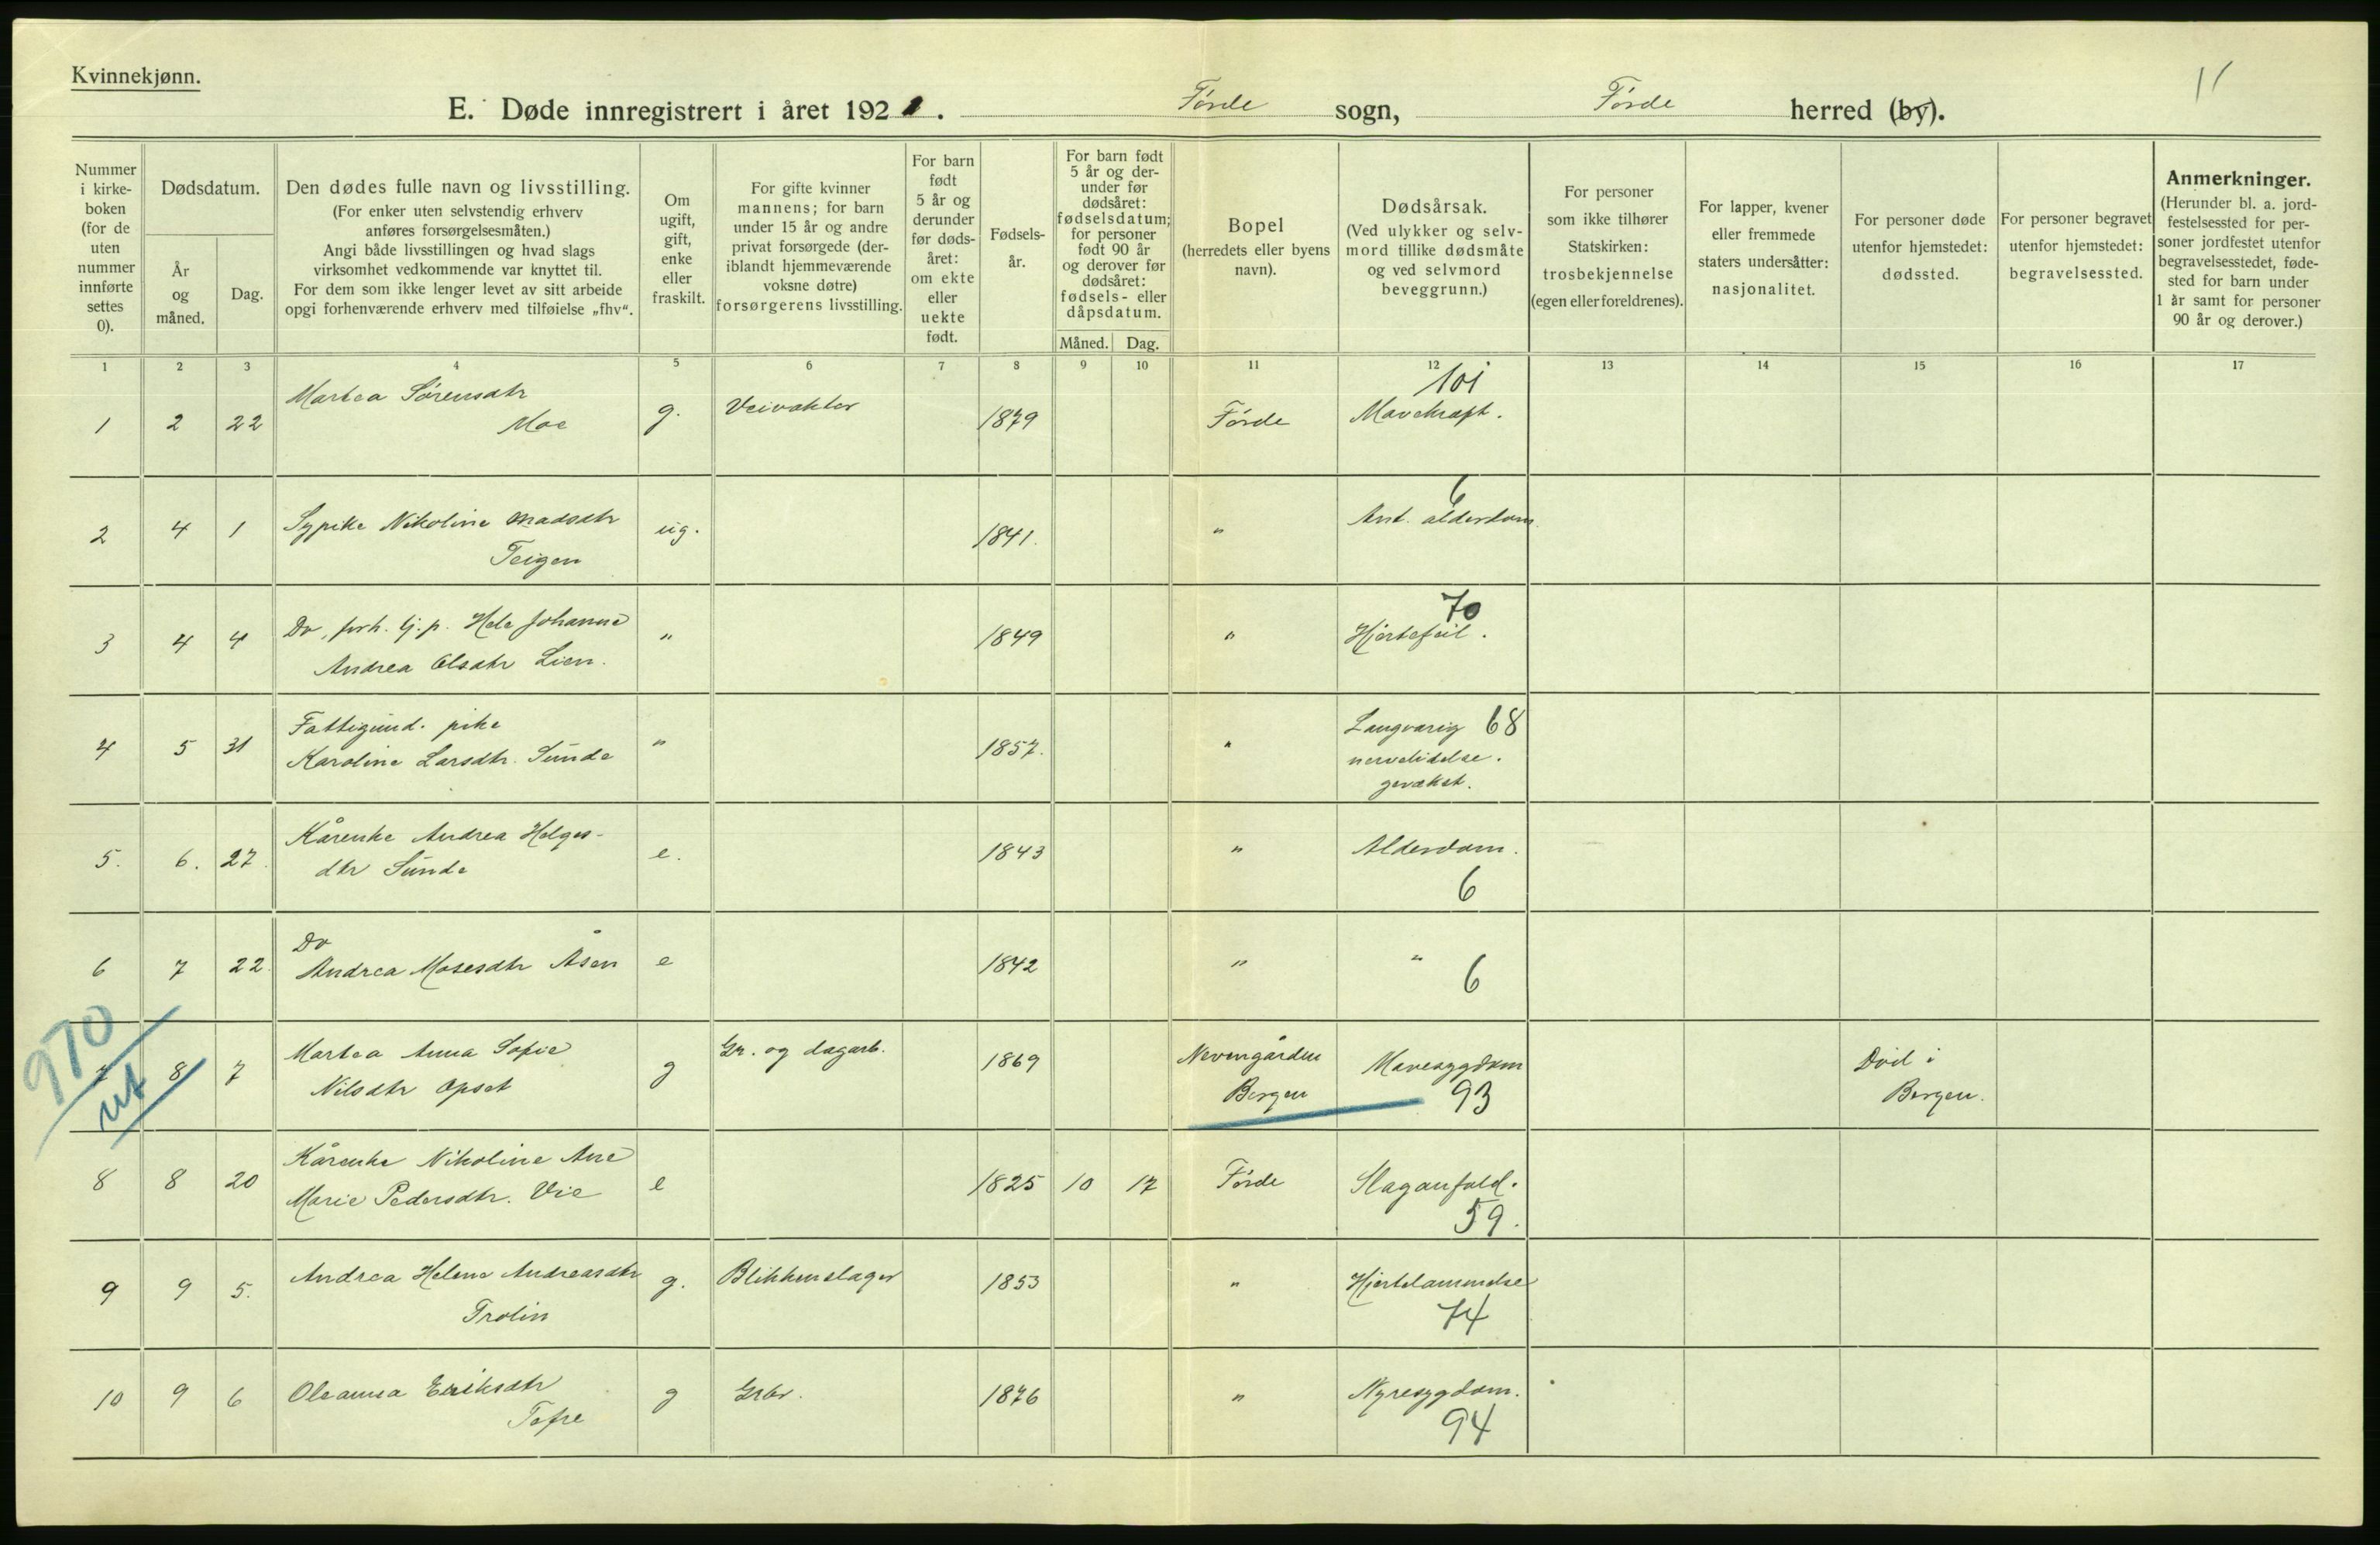 Kvinnekjønn.
11
E. Døde innregistrert i året 1921. Førde sogn, Førde herred (by).
Nummer i kirke- boken (for de uten nummer innførte settes 0).
Dødsdatum.
År og måned.
Dag.
Den dødes fulle navn og livsstilling.
(For enker uten selvstendig erhverv
anføres forsørgelsesmåten.)
Angi både livsstillingen og hvad slags
virksomhet vedkommende var knyttet til.
For dem som ikke lenger levet av sitt arbeide
opgi forhenværende erhverv med tilføielse „fhv“.
Om ugift, gift, enke eller fraskilt.
For gifte kvinner
mannens; for barn
under 15 år og andre
privat forsørgede (der-
iblandt hjemmeværende
voksne døtre)
forsørgerens livsstilling.
For barn født 5 år og derunder før døds- året: om ekte eller uekte født.
Fødsels- år.
For barn født
5 år og der-
under før
dødsåret:
fødselsdatum;
for personer
født 90 år
og derover før
dødsåret:
fødsels- eller
dåpsdatum.
Måned. Dag.
Bopel
(herredets eller byens
navn).
Dødsårsak.
(Ved ulykker og selv-
mord tillike dødsmåte
og ved selvmord
beveggrunn.)
For personer
som ikke tilhører
Statskirken:
trosbekjennelse
(egen eller foreldrenes).
For lapper, kvener
eller fremmede
staters undersåtter:
nasjonalitet.
For personer døde
utenfor hjemstedet:
dødssted.
For personer begravet
utenfor hjemstedet:
begravelsessted.
Anmerkninger.
(Herunder bl. a. jord-
festelsessted for per-
soner jordfestet utenfor
begravelsesstedet, føde-
sted for barn under
1 år samt for personer
90 år og derover.)
1 2 3 4 5 6 7 8 9 10 11 12 13 14 15 16 17
Martea Sørensdtr 101
1 2 22 Moe g. Veivokter 1879 Førde Mavekræft.
6
2 4 1 Sypike Nikoline Madsdtr ug. 1841. " Ant. alderdom
Teigen
70
3 4 4 Do, forh. tj.p. Hele Johanne " 1849 " Hjertefeil.
Andrea Olsdtr Lien.
Fattigund. pike Langvarig 68
4 5 31 Karoline Larsdtr. Sunde " 1857. " nervelidelse.
gevækst.
5. 6. 27. Kårenke Andrea Helges- e. 1843 " Alderdom.
dtr Sunde 6
Do
6 7 22. Andrea Mosesdtr Åsen e 1842 " " 6
970
ut
7 8 7 Martea Anna Sofie g Gr. og dagarb. 1869 Nevengården Mavesygdom Død i
Nilsdtr Opset Bergen 93 Bergen.
8 8 20 Kårenke Nikoline Ane e 1825 10 17 Førde Slaganfald.
Marie Pedersdtr. Vie 59.
9 9 5. Andrea Helene Andreasdtr g. Blikkenslager 1853 " Hjertelammelse
Trolin 74
10 9 6 Oleanna Eriksdtr g Grbr. 1876 " Nyresygdom.
Tefre 94